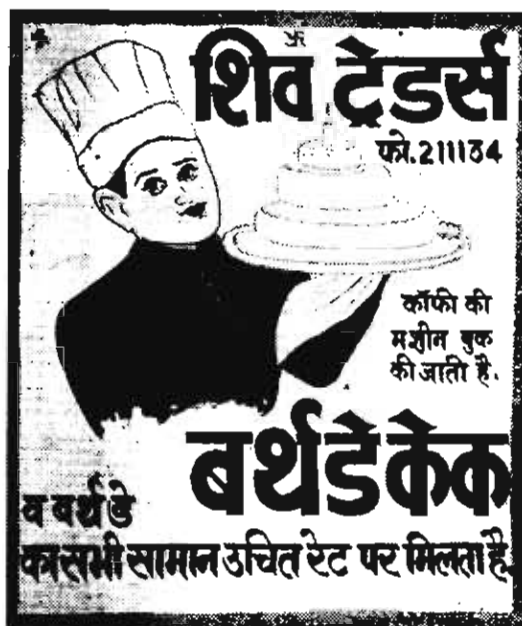 शिव ट्रेडर्स
फो.211134
कॉफी की
मशीन बुक
की जाती है.
बर्थडे केक
व बर्थ डे
का सभी सामान उचित रेट पर मिलता है.